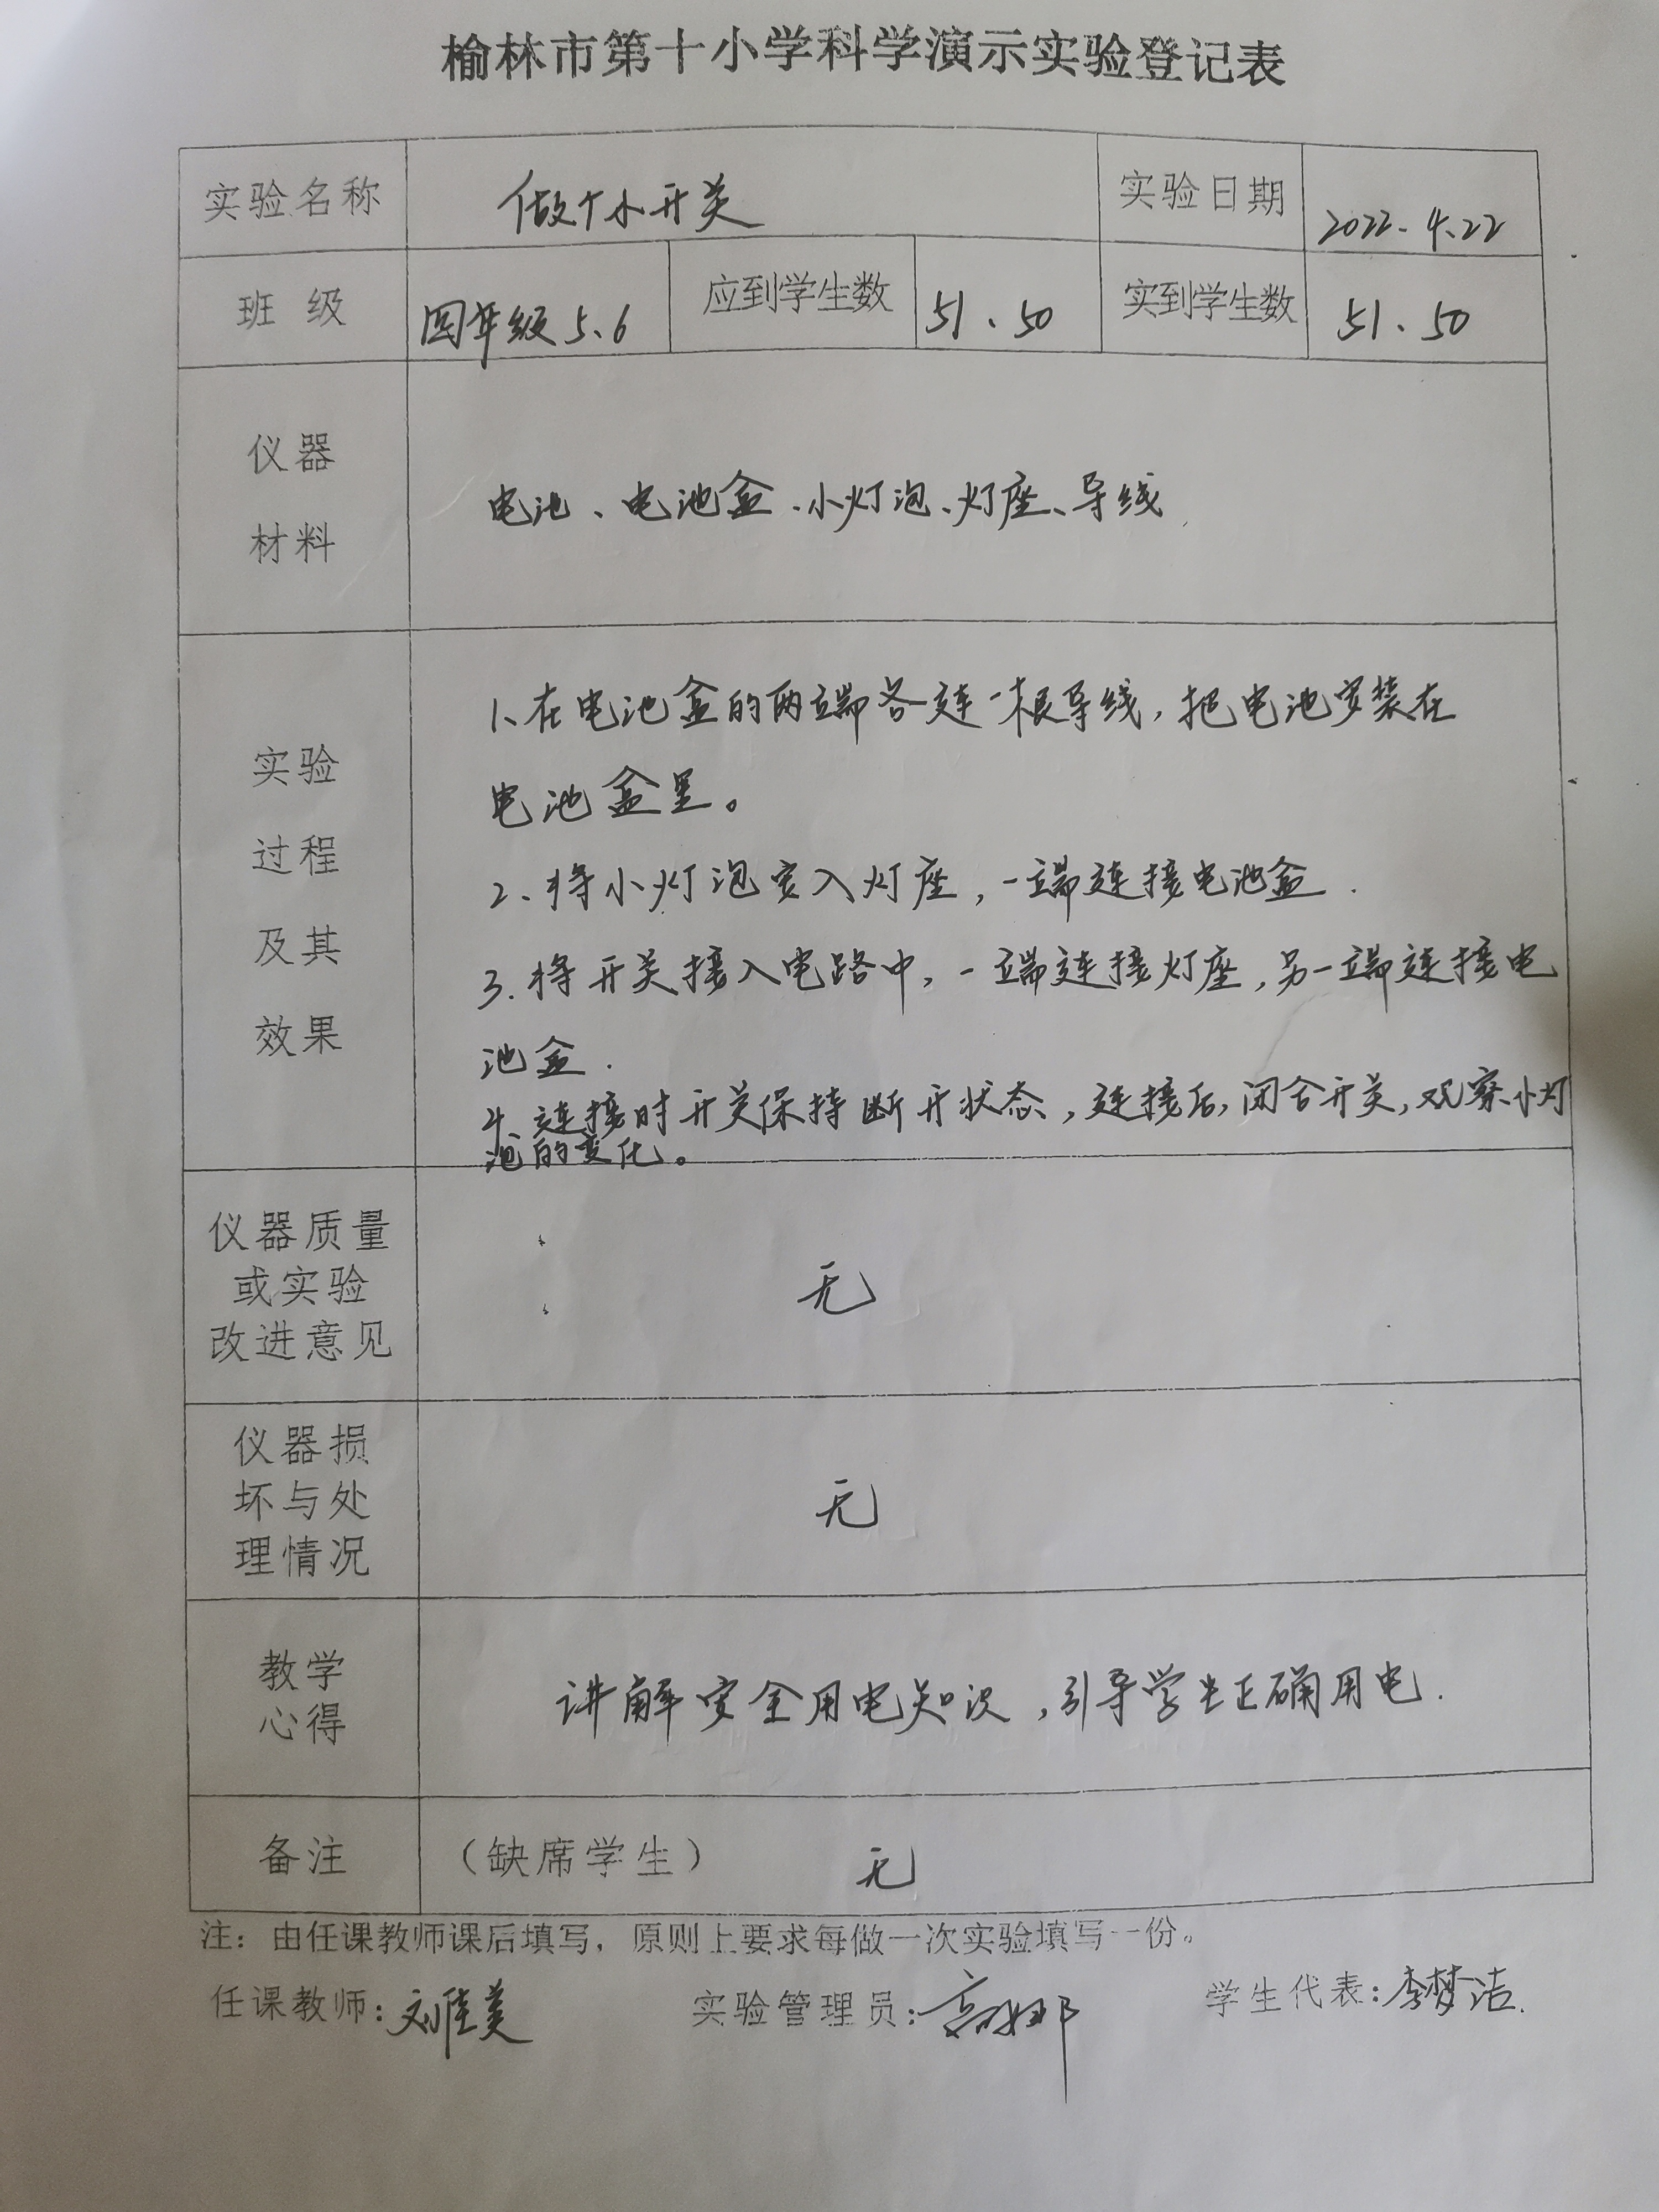 榆林市第十小学科学演示实验登记表
实验名称 做个小开关 实验日期 2022.4.22
班 级 四年级5、6 应到学生数 51、50 实到学生数 51、50
仪器
材料
电池、电池盒、小灯泡、灯座、导线
实验
过程
及其
效果
1、在电池盒的两端各连一根导线，把电池安装在
电池盒里。
2、将小灯泡安入灯座，一端连接电池盒.
3.将开关接入电路中，一端连接灯座，另一端连接电
池盒.
4、连接时开关保持断开状态，连接后，闭合开关，观察小灯
泡的变化。
仪器质量
或实验
改进意见
无
仪器损
坏与处
理情况
无
教学
心得
讲解安全用电知识，引导学生正确用电.
备注 （缺席学生） 无
注：由任课教师课后填写，原则上要求每做一次实验填写一份。
任课教师：刘佳美 实验管理员：高娜 学生代表：李梦洁.